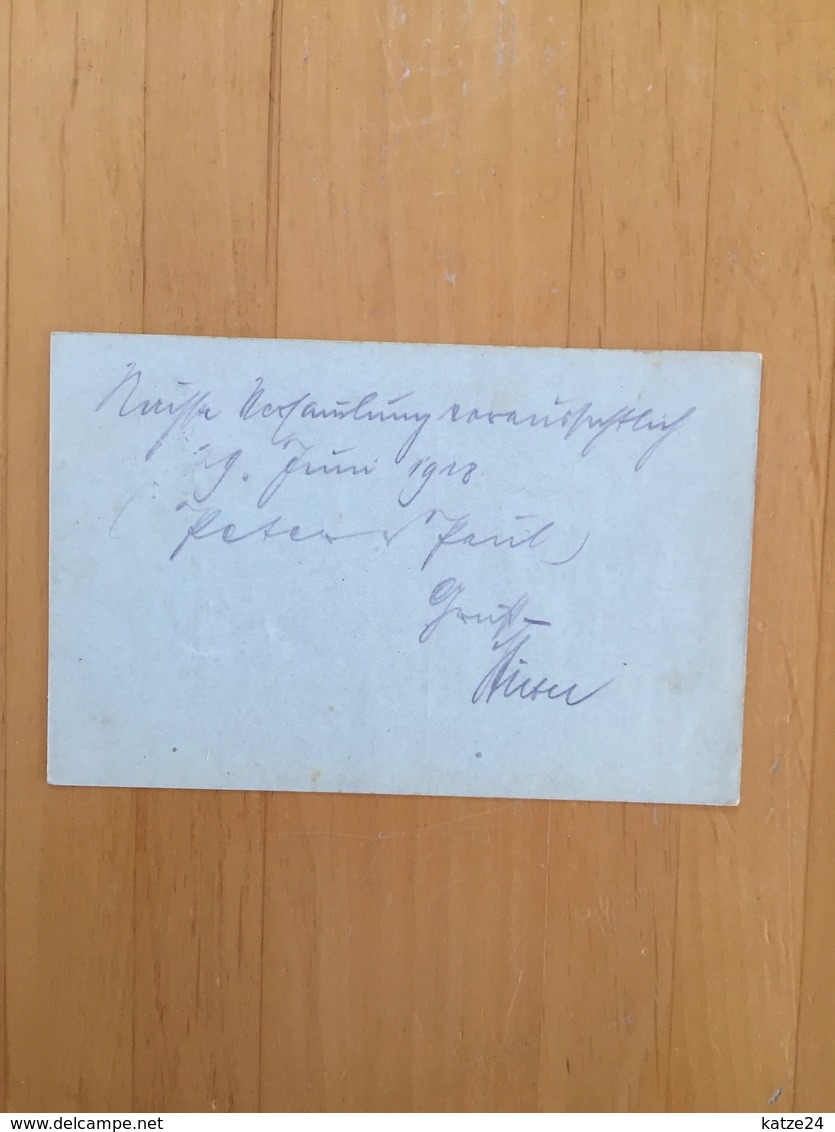 Nächste Versamlung voraussichtlich
29. Juni 1918
(Peter u Paul)
Gruß
delcampe.net
katze24